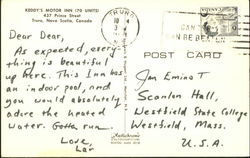 KEDDY'S MOTOR INN (70 UNITS)
437 Prince Street
Truro, Nova Scotia, Canada
TRURO
POST CARD
Dear Dear,
As expected, every
thing is beautiful
up here. This Inn has
an indoor pool, and
you would absolutely
adore the heated
water. Gotta run.
Love,
Jim Emino T
Scanlon Hall,
Westfield State College
Westfield, Mass.
U.S.A.